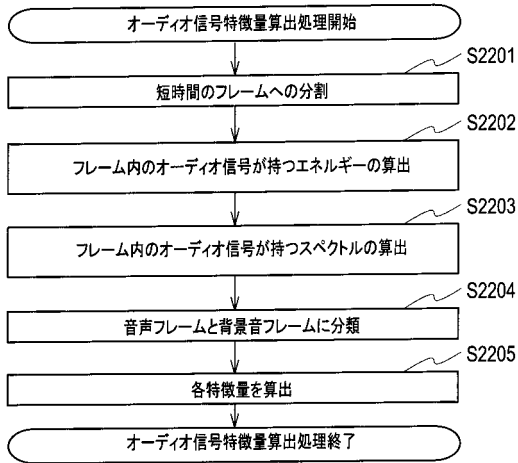 オーディオ信号特徴量算出処理開始
S2201
短時間のフレームへの分割
S2202
フレーム内のオーディオ信号が持つエネルギーの算出
S2203
フレーム内のオーディオ信号が持つスペクトルの算出
S2204
音声フレームと背景音フレームに分類
S2205
各特徴量を算出
オーディオ信号特徴量算出処理終了